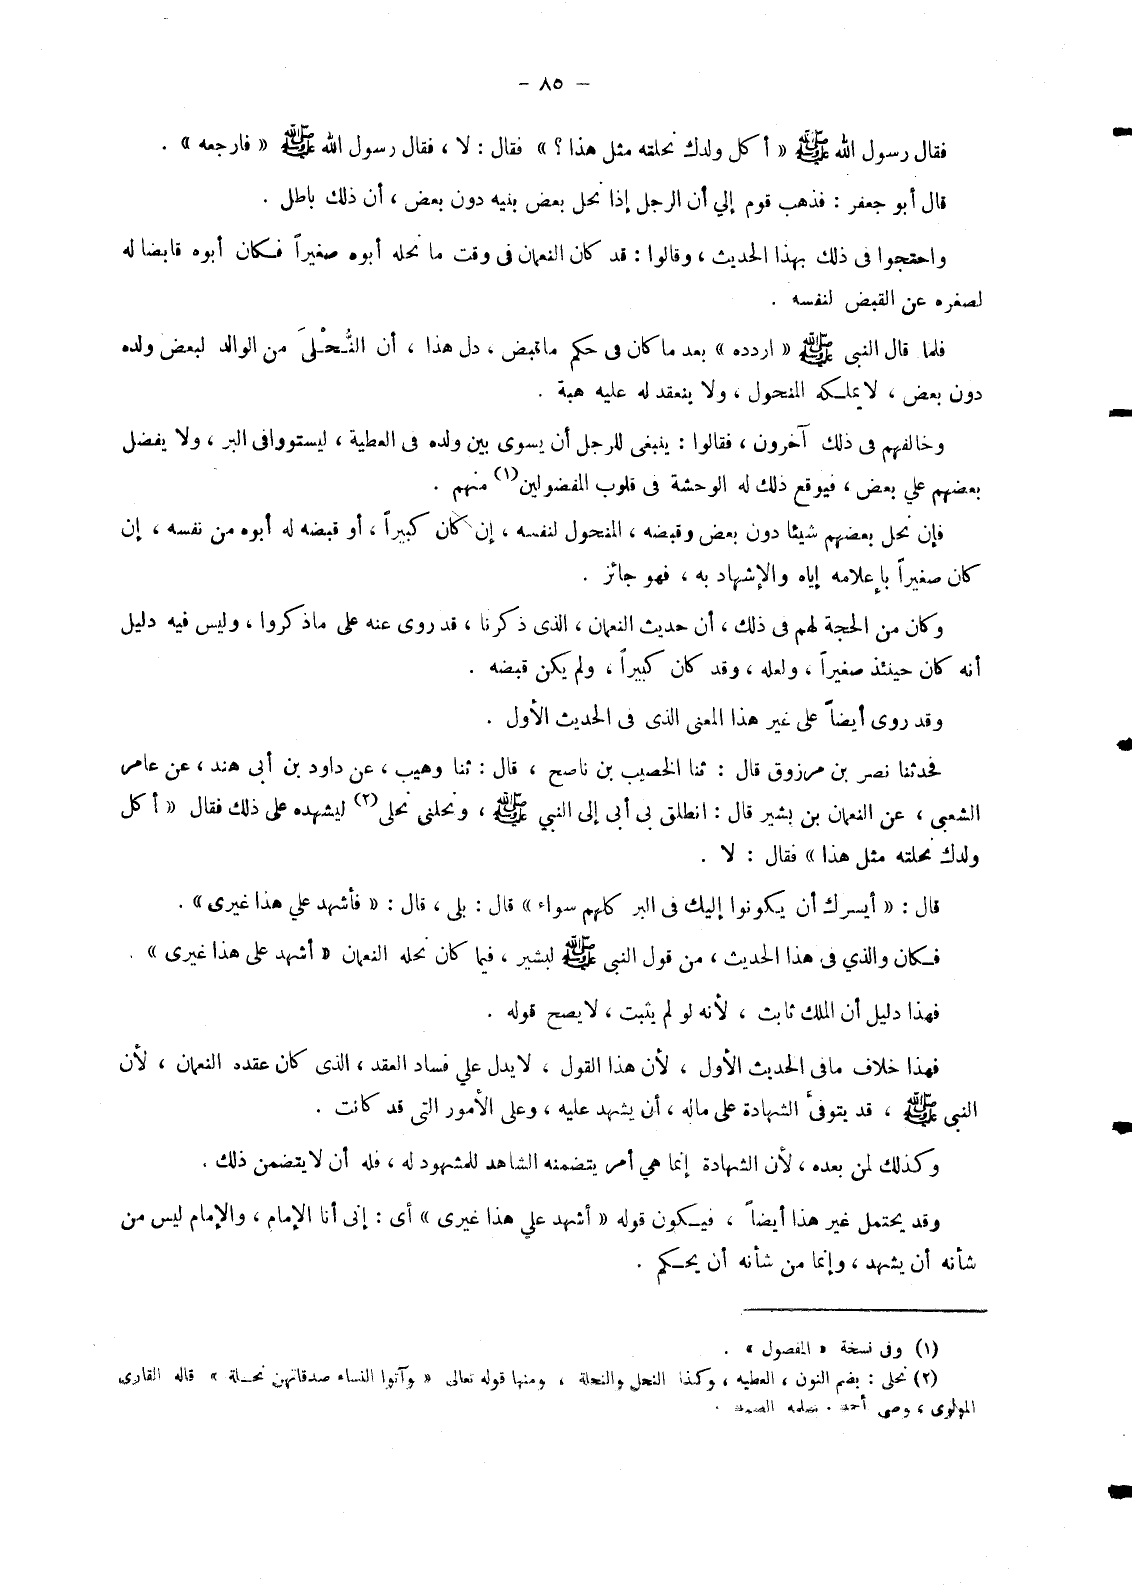 — ٨٥ —
فقال رسول الله ﷺ « أكل ولدك نحلته مثل هذا ؟ » فقال : لا ، فقال رسول الله ﷺ « فارجعه » .
قال أبو جعفر : فذهب قوم إلي أن الرجل إذا نحل بعض بنيه دون بعض ، أن ذلك باطل .
واحتجوا فى ذلك بهذا الحديث ، وقالوا : قد كان النعمان فى وقت ما نحله أبوه صغيراً فكان أبوه قابضا له
لصغره عن القبض لنفسه .
فلما قال النبى ﷺ « اردده » بعد ما كان فى حكم ماقبض ، دل هذا ، أن النُّحْلىَ من الوالد لبعض ولده
دون بعض ، لا يملكه المنحول ، ولا ينعقد له عليه هبة .
وخالفهم فى ذلك آخرون ، فقالوا : ينبغى للرجل أن يسوى بين ولده فى العطية ، ليستووافى البر ، ولا يفضل
بعضهم علي بعض ، فيوقع ذلك له الوحشة فى قلوب المفضولين(١) منهم .
فإن نحل بعضهم شيئا دون بعض وقبضه ، المنحول لنفسه ، إن كان كبيراً ، أو قبضه له أبوه من نفسه ، إن
كان صغيراً بإعلامه إياه والإشهاد به ، فهو جائز .
وكان من الحجة لهم فى ذلك ، أن حديث النعمان ، الذى ذكرنا ، قد روى عنه على ماذكروا ، وليس فيه دليل
أنه كان حينئذ صغيراً ، ولعله ، وقد كان كبيراً ، ولم يكن قبضه .
وقد روى أيضاً على غير هذا المعنى الذى فى الحديث الأول .
فحدثنا نصر بن مرزوق قال : ثنا الخصيب بن ناصح ، قال : ثنا وهيب ، عن داود بن أبى هند ، عن عامر
الشعبى ، عن النعمان بن بشير قال : انطلق بى أبى إلى النبي ﷺ ، ونحلنى نحلى(٢) ليشهده على ذلك فقال « أكل
ولدك نحلته مثل هذا » فقال : لا .
قال : « أيسرك أن يكونوا إليك فى البر كلهم سواء » قال : بلى ، قال : « فأشهد علي هذا غيرى » .
فكان والذي فى هذا الحديث ، من قول النبى ﷺ لبشير ، فيما كان نحله النعمان « أشهد على هذا غيرى » .
فهذا دليل أن الملك ثابت ، لأنه لو لم يثبت ، لايصح قوله .
فهذا خلاف مافى الحديث الأول ، لأن هذا القول ، لايدل علي فساد العقد ، الذى كان عقدد النعمان ، لأن
النبى ﷺ ، قد يتوفىَّ الشهادة على ماله ، أن يشهد عليه ، وعلى الأمور التى قد كانت .
وكذلك لمن بعده ، لأن الشهادة إنما هي أمر يتضمنه الشاهد للمشهود له ، فله أن لايتضمن ذلك .
وقد يحتمل غير هذا أيضاً ، فيكون قوله « أشهد علي هذا غيرى » أى : إنى أنا الإمام ، والإمام ليس من
شأنه أن يشهد ، وإنما من شأنه أن يحكم .
(١) وفى نسخة « المفصول » .
(٢) نحلى : بضم النون ، العطيه ، وكذا النحل والنحلة ، ومنها قوله تعالى « وآتوا النساء صدقاتهن نحلة » قاله القارى
المولوى ، وصى أحمد .